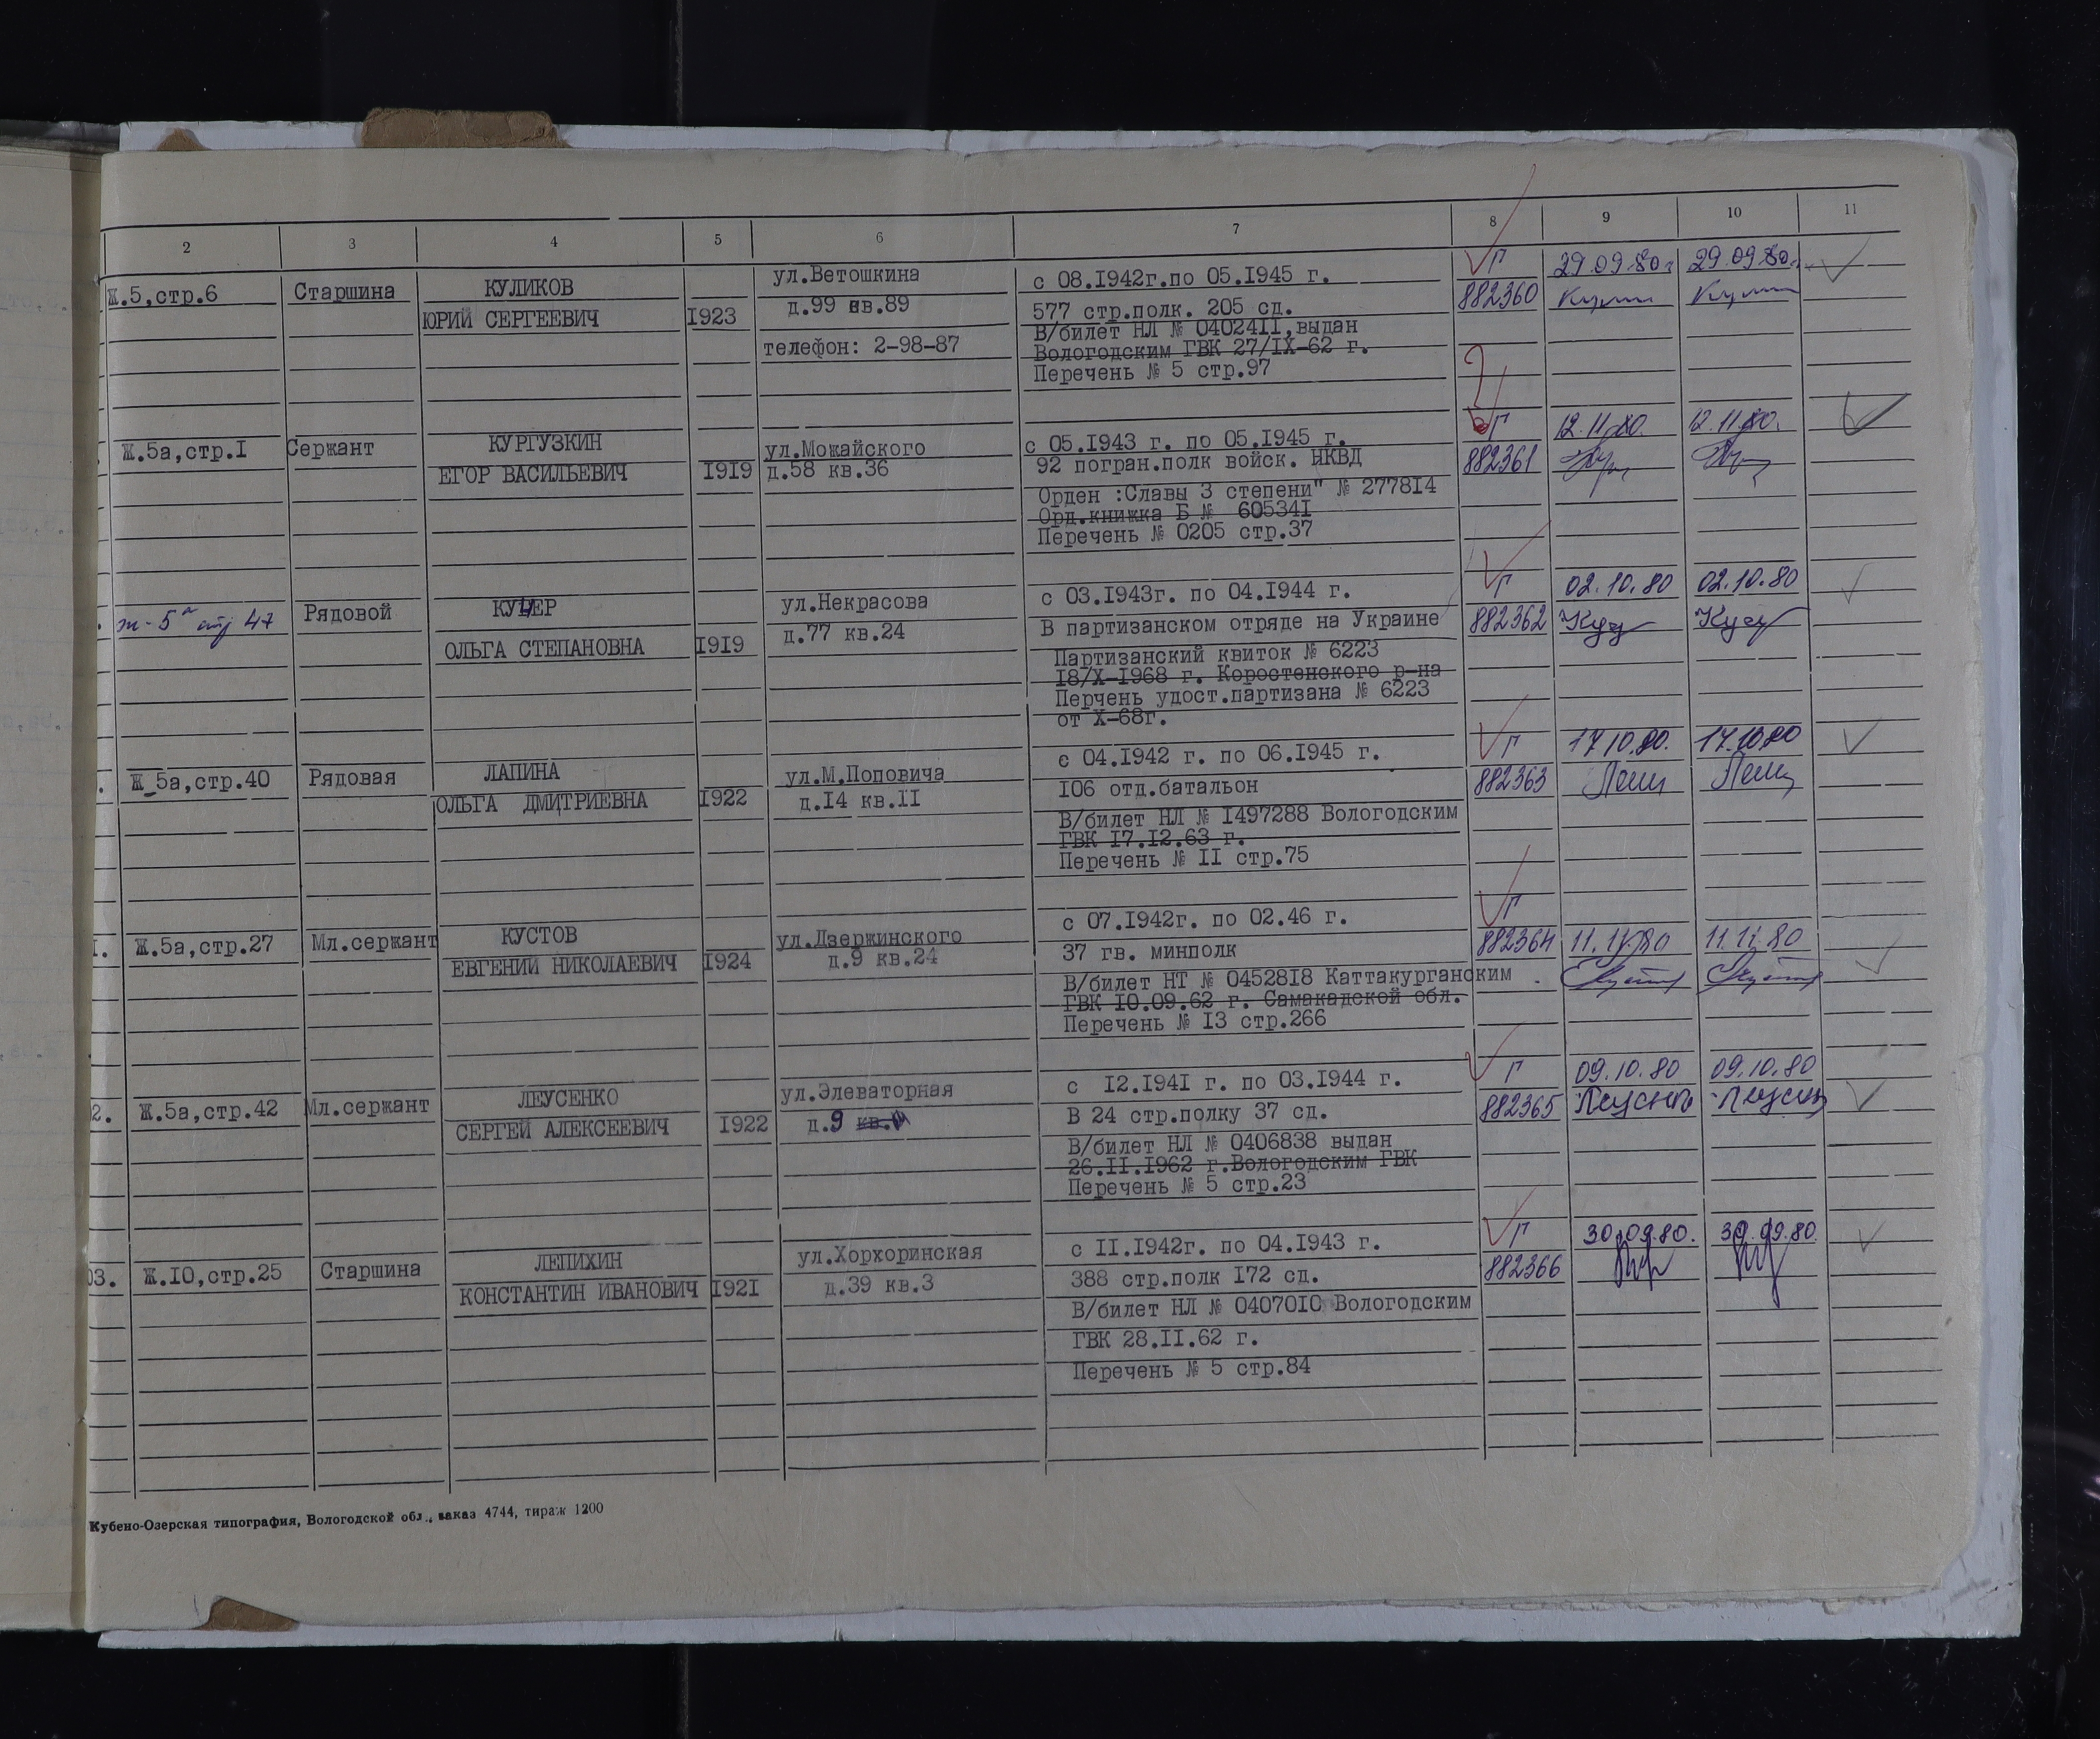 2 3 4 5 6 7 8 9 10 11
Ж.5,стр.6 Старшина КУЛИКОВ ул.Ветошкина с 08.1942г.по 05.1945 г. Г 29.09.80г 29.09.80г.
ЮРИЙ СЕРГЕЕВИЧ 1923 д.99 кв.89 577 стр.полк. 205 сд. 882360
В/билет НЛ № 0402411,выдан
телефон: 2-98-87 Вологодским ГВК 27/IX-62 г.
Перечень № 5 стр.97
Ж.5а,стр.1 Сержант КУРГУЗКИН ул.Можайского с 05.1943 г. по 05.1945 г. Г 12.11.80. 12.11.80.
ЕГОР ВАСИЛЬЕВИЧ 1919 д.58 кв.36 92 погран.полк войск. НКВД 882361
Орден :Славы 3 степени" № 277814
Орд.книжка Б № 605341
Перечень № 0205 стр.37
ж-5а стр 47 Рядовой КУЦЕР ул.Некрасова с 03.1943г. по 04.1944 г. Г 02.10.80 02.10.80
ОЛЬГА СТЕПАНОВНА 1919 д.77 кв.24 В партизанском отряде на Украине 882362
Партизанский квиток № 6223
18/X-1968 г. Коростенского р-на
Перчень удост.партизана № 6223
от X-68г.
Ж_5а,стр.40 Рядовая ЛАПИНА ул.М.Поповича с 04.1942 г. по 06.1945 г. Г 17.10.80. 17.10.80
ОЛЬГА ДМИТРИЕВНА 1922 д.14 кв.11 106 отд.батальон 882363
В/билет НЛ № 1497288 Вологодским
ГВК 17.12.63 г.
Перечень № 11 стр.75
1. Ж.5а,стр.27 Мл.сержант КУСТОВ ул.Дзержинского с 07.1942г. по 02.46 г. Г
ЕВГЕНИЙ НИКОЛАЕВИЧ 1924 д.9 кв.24 37 гв. минполк 882364 11.11.80 11.11.80
В/билет НТ № 0452818 Каттакурганским
ГВК 10.09.62 г. Самакадской обл.
Перечень № 13 стр.266
2. Ж.5а,стр.42 Мл.сержант ЛЕУСЕНКО ул.Элеваторная с 12.1941 г. по 03.1944 г. Г 09.10.80 09.10.80
СЕРГЕЙ АЛЕКСЕЕВИЧ 1922 д.9 кв. В 24 стр.полку 37 сд. 882365
В/билет НЛ № 0406838 выдан
26.11.1962 г.Вологодским ГВК
Перечень № 5 стр.23
03. Ж.10,стр.25 Старшина ЛЕПИХИН ул.Хорхоринская с 11.1942г. по 04.1943 г. Г 30.09.80. 30.09.80
КОНСТАНТИН ИВАНОВИЧ 1921 д.39 кв.3 388 стр.полк 172 сд. 882366
В/билет НЛ № 0407010 Вологодским
ГВК 28.11.62 г.
Перечень № 5 стр.84
Кубено-Озерская типография, Вологодской обл., заказ 4744, тираж 1200